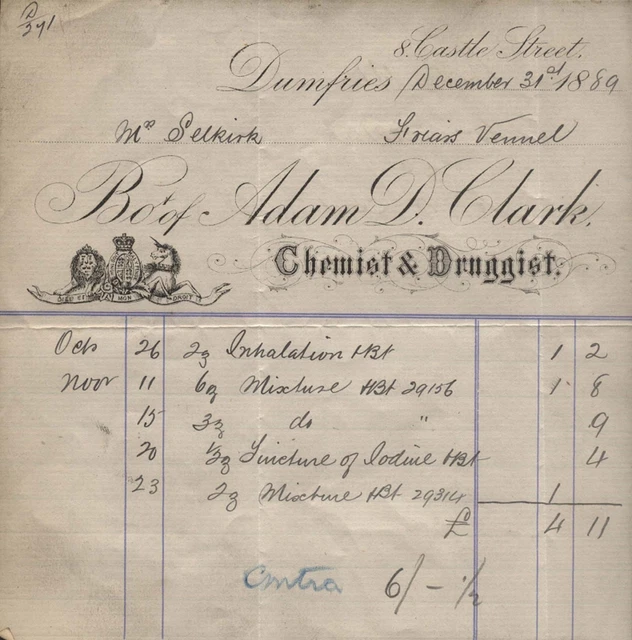 D/371
8. Castle Street.
Dumfries December 31st 1889
Mr Selkirk Friars Vennel
Bot. of Adam D. Clark.
Chemist & Druggist.
DIEU ET MON DROIT
Octr 26 2℥ Inhalation HBt 1 2
Novr 11 6℥ Mixture HBt 29156 1 8
15 3℥ do " 9
20 ½℥ Tincture of Iodine HBt 4
23 2℥ Mixture HBt 29314 1
£ 4 11
Contra 6/- ·/½